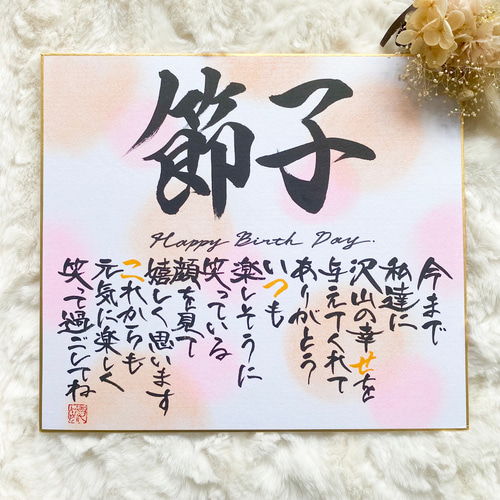 節子
Happy Birth Day.
今まで
私達に
沢山の幸せを
与えてくれて
ありがとう
いつも
楽しそうに
笑っている
顔を見て
嬉しく思います
これからも
元気に楽しく
笑って過ごしてね